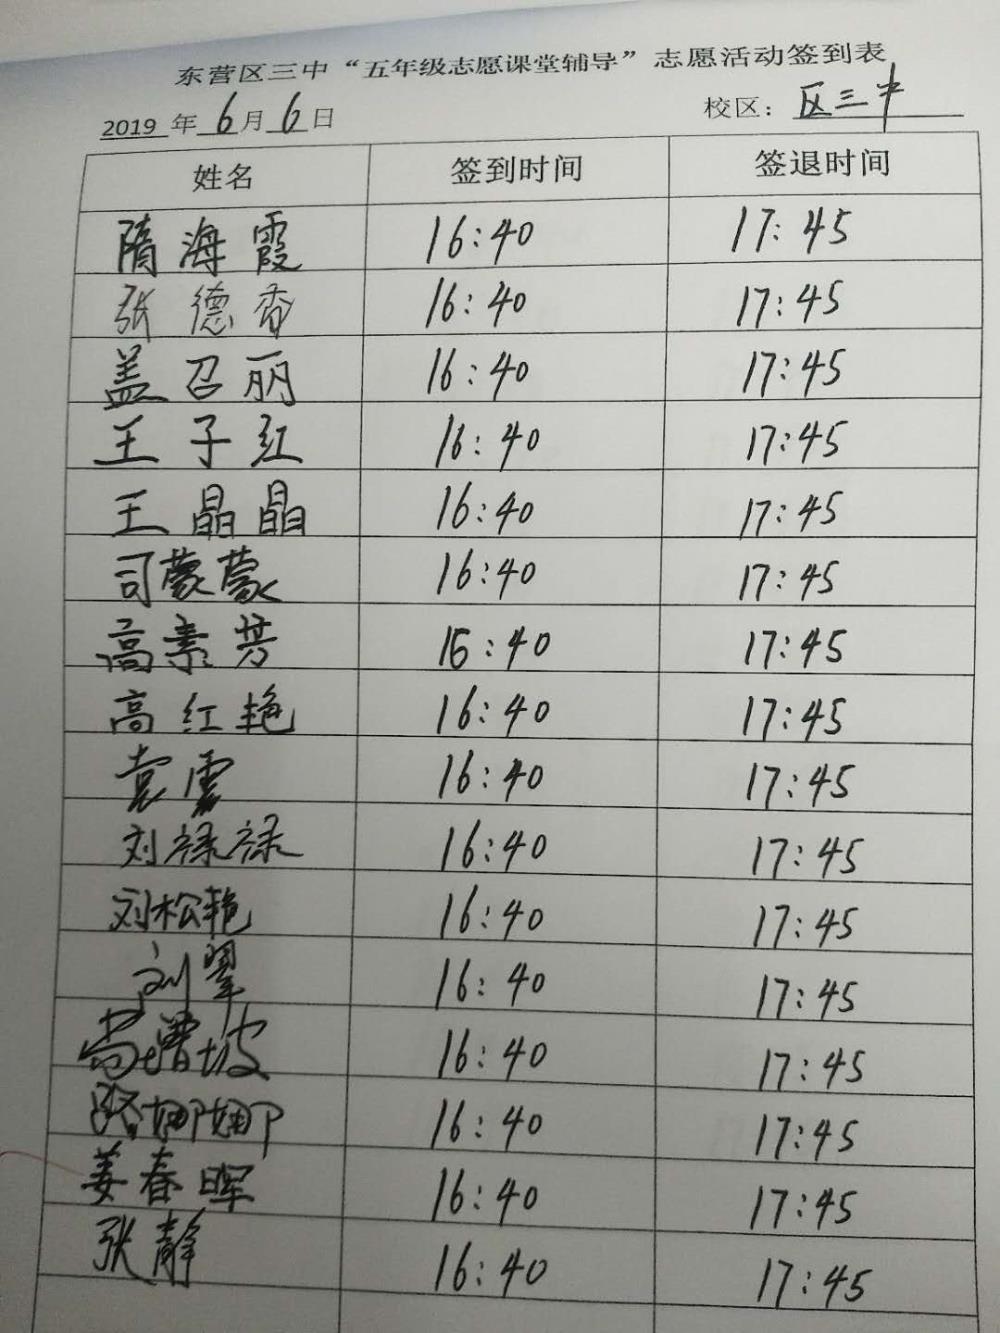 东营区三中“五年级志愿课堂辅导”志愿活动签到表
2019 年 6 月 6 日 校区： 区三中
姓名 签到时间 签退时间
隋海霞 16:40 17:45
张德香 16:40 17:45
盖召丽 16:40 17:45
王子红 16:40 17:45
王晶晶 16:40 17:45
司蒙蒙 16:40 17:45
高素芳 16:40 17:45
高红艳 16:40 17:45
袁雪 16:40 17:45
刘禄禄 16:40 17:45
刘松艳 16:40 17:45
刘翠 16:40 17:45
尚增坡 16:40 17:45
路娜娜 16:40 17:45
姜春晖 16:40 17:45
张静 16:40 17:45